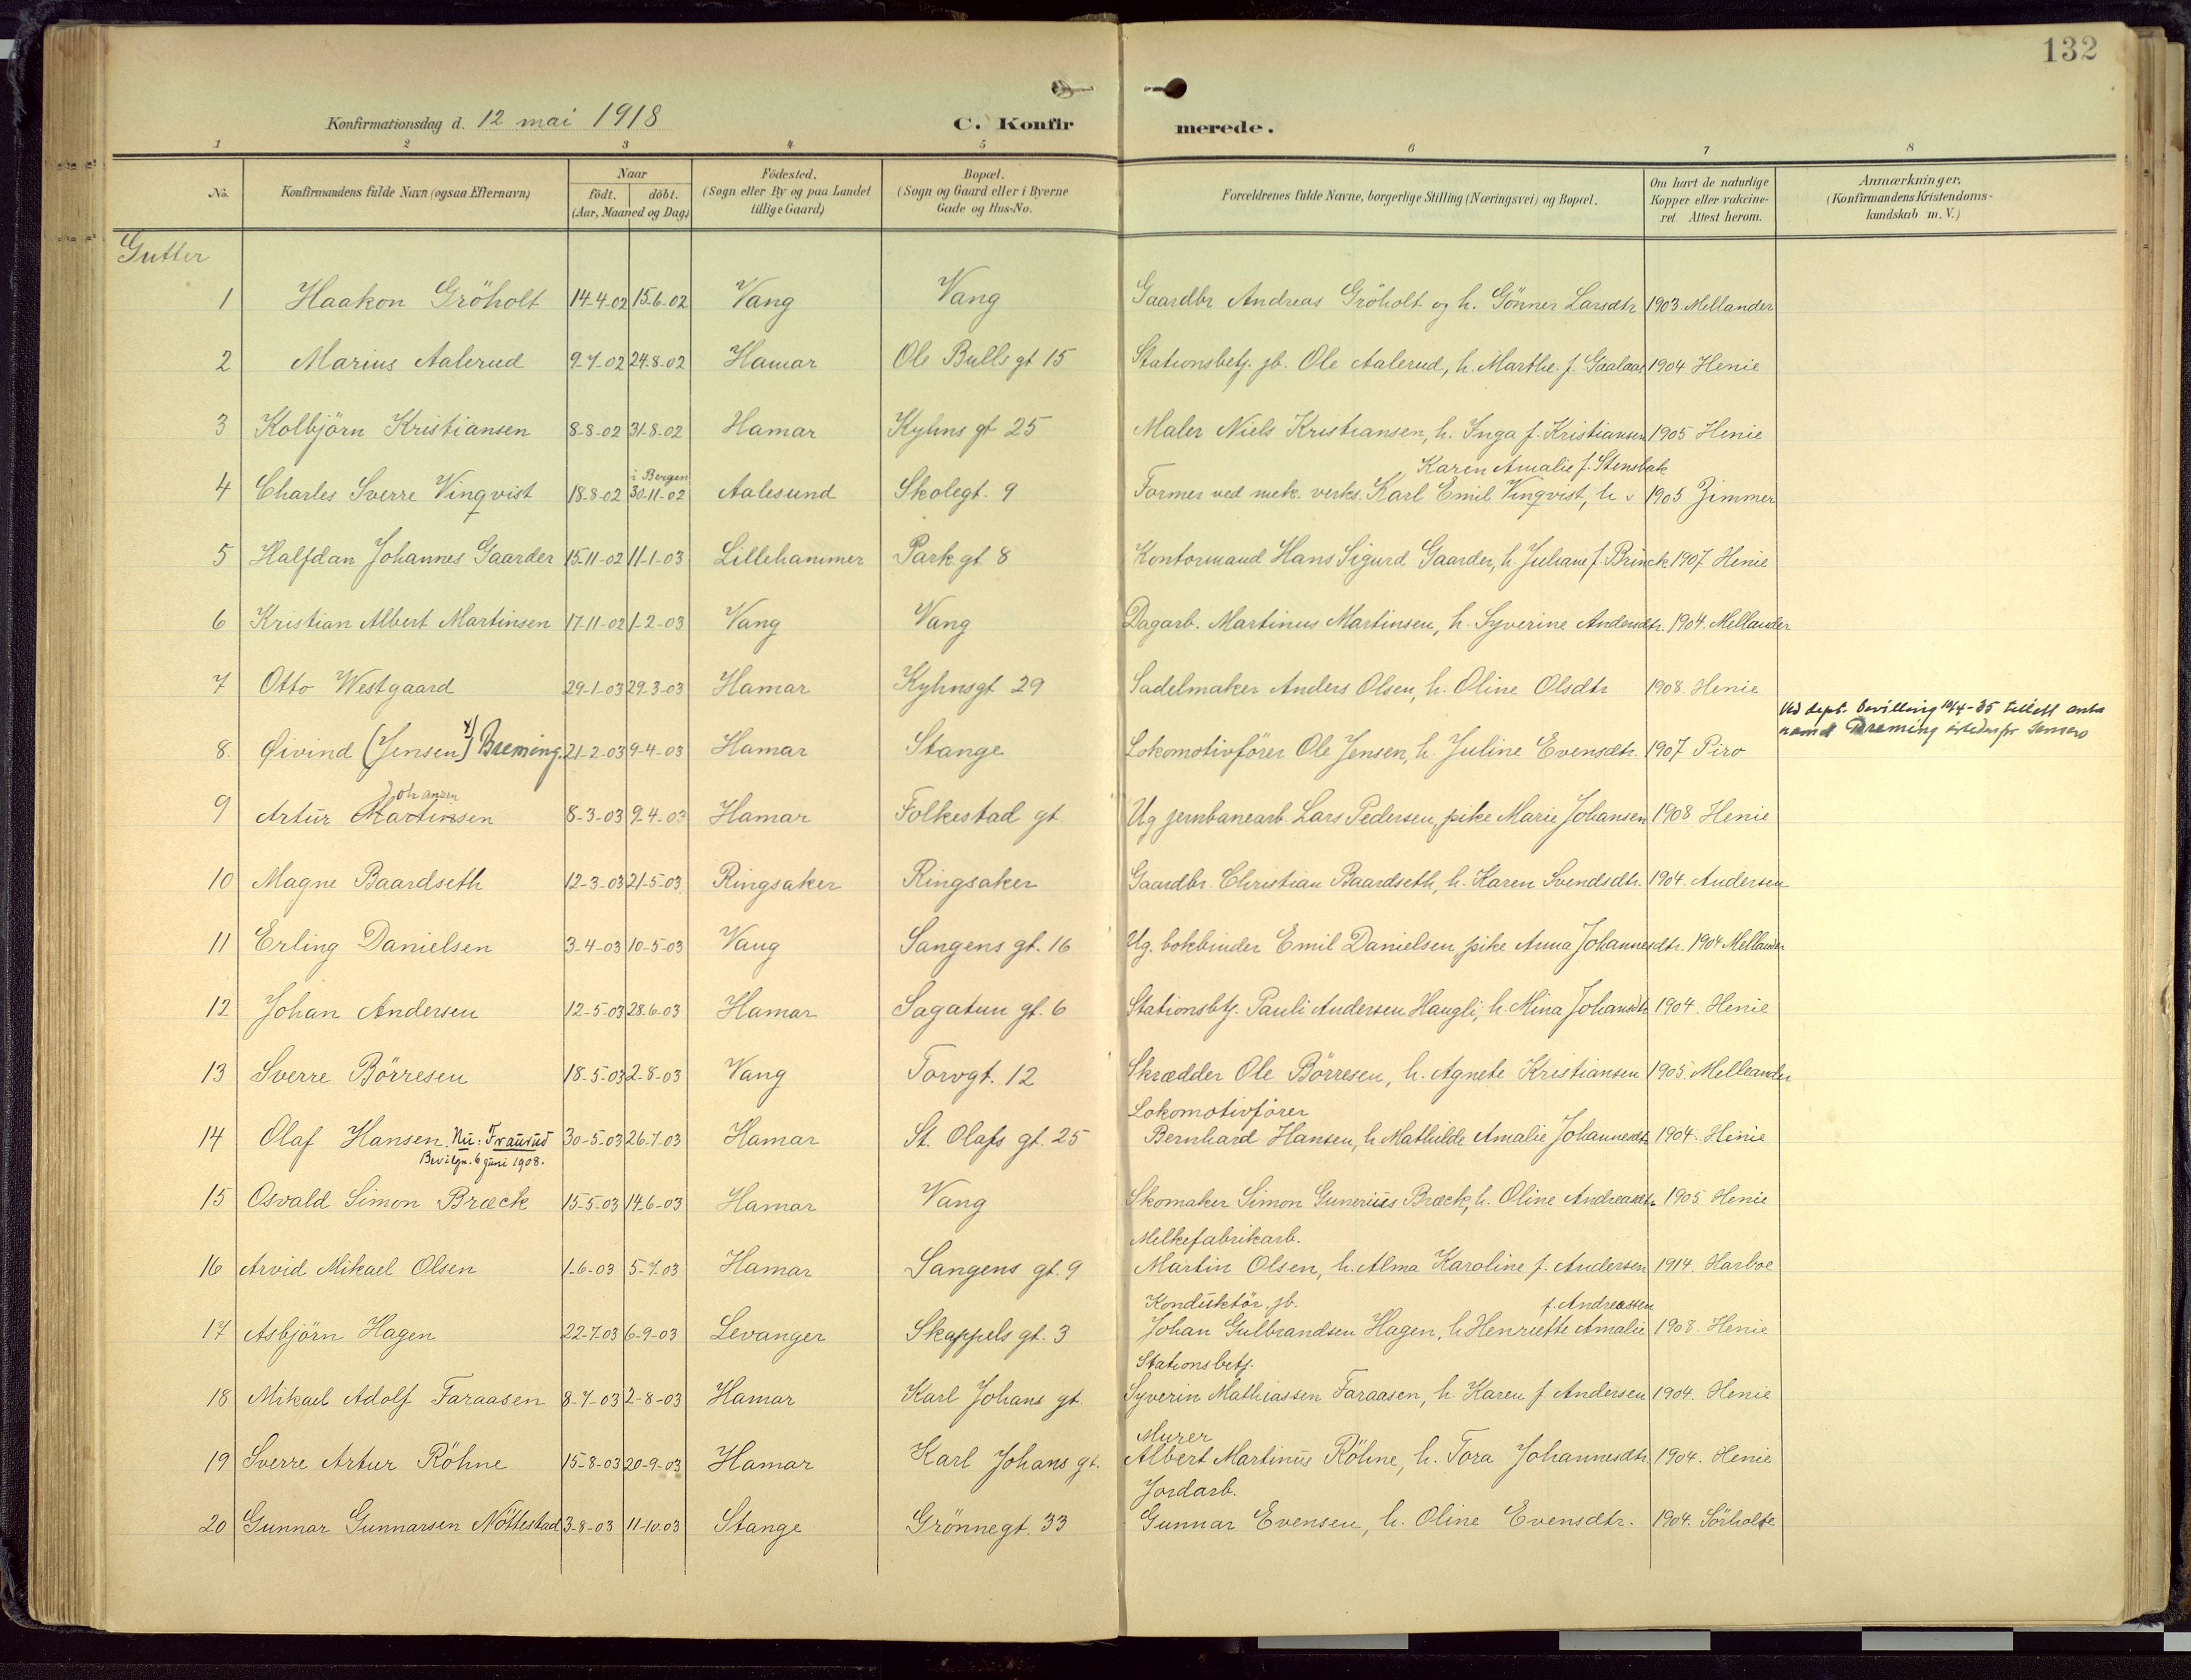 132
Konfirmationsdag d. 12 mai 1918 C. Konfirmerede.
1 2 3 4 5 6 7 8
No. Konfirmandens fulde Navn (ogsaa Efternavn) Naar født. døbt. (Aar, Maaned og Dag) Födested. (Sogn eller By og paa Landet tillige Gaard) Bopæl. (Sogn og Gaard eller i Byerne Gade og Hus-No. Forældrenes fulde Navne, borgerlige Stilling (Næringsvei) og Bopæl. Om havt de naturlige Kopper eller vakcineret. Attest herom. Anmærkninger. (Konfirmandens Kristendomskundskab m. V.)
Gutter
1 Haakon Gröholt 14-4-02 15-6-02 Vang Vang Gaardbr Andreas Gröholt og h. Gönner Larsdtr 1903. Mellander
2 Marius Aalerud 9-7-02 24-8-02 Hamar Ole Bulls gt 15 Stationsbetj. jb. Ole Aalerud, h. Marthe f. Gaalaas 1904 Henie
3 Kolbjörn Kristiansen 8-8-02 31-8-02 Hamar Kyhns gt 25 Maler Niels Kristiansen, h. Inga f. Kristiansen 1905 Henie
i Bergen Karen Amalie f. Stensbak
4 Charles Sverre Vinqvist 18-8-02 30-11-02 Aalesund Skolegt. 9 Former ved mek. verks. Karl Emil Vinqvist, h. 1905 Zimmer
5 Halfdan Johannes Gaarder 15-11-02 11-1-03 Lillehammer Park gt 8 Kontormand Hans Sigurd Gaarder, h. Juliane f. Brinck 1907 Henie
6 Kristian Albert Martinsen 17-11-02 1-2-03 Vang Vang Dagarb. Martinus Martinsen, h. Syverine Andersdtr. 1904. Mellander
7 Otto Westgaard 29-1-03 29-3-03 Hamar Kyhnsgt 29 Sadelmaker Anders Olsen, h. Oline Olsdtr 1908 Henie
Ved dept. bevilling 10/4-35 tillatt anta
navnet Breming istedenfor Jensen
8. Øivind (Jensen x)) Breming. 21-2-03 9-4-03 Hamar Stange Lokomotivförer Ole Jensen, h. Juline Evensdtr. 1907 Piro
Johansen
9 Artur Martinsen 8-3-03 9-4-03 Hamar Folkestad gt Ug jernbanearb. Lars Pedersen, pike Marie Johansen 1908 Henie
10 Magne Baardseth 12-3-03 21-5-03 Ringsaker Ringsaker Gaardbr. Christian Baardseth, h. Karen Svendsdtr. 1904. Andersen
11 Erling Danielsen 3-4-03 10-5-03 Vang Sangens gt. 16 Ug. bokbinder Emil Danielsen, pike Anna Johannesdtr. 1904 Mellander
12 Johan Andersen 12-5-03 28-6-03 Hamar Sagatun gt. 6 Stationsbtj. Pauli Andersen Haugli, h. Mina Johansdtr 1904. Henie
13 Sverre Börresen 18-5-03 2-8-03 Vang Torvgt. 12 Skrædder Ole Börresen, h. Agnete Kristiansen 1905. Melleander
Lokomotivförer
14 Olaf Hansen. Nu: Fraurud 30-5-03 26-7-03 Hamar St. Olafs gt. 25 Bernhard Hansen, h Mathilde Amalie Johannesdtr 1904. Henie
Bevilgn. 6 juni 1908.
15 Osvald Simon Bræck 15-5-03 14-6-03 Hamar Vang Skomaker Simon Gunerius Bræck, h. Oline Andreasdtr 1905 Henie
Melkefabrikarb.
16 Arvid Mikael Olsen 1-6-03 5-7-03 Hamar Sangens gt. 9 Martin Olsen, h. Alma Karoline f. Andersen 1914. Harboe
Konduktör, jb. f. Andreassen
17 Asbjörn Hagen 22-7-03 6-9-03 Levanger Skappels gt. 3 Johan Gulbrandsen Hagen, h Henriette Amalie 1908. Henie
Stationsbetj.
18 Mikael Adolf Faraasen 8-7-03 2-8-03 Hamar Karl Johans gt. Syverin Mathiassen Faraasen, h. Karen f. Andersen 1904. Henie
Murer
19 Sverre Artur Röhne 15-8-03 20-9-03 Hamar Karl Johans gt. Albert Martinus Röhne, h. Tora Johannesdtr. 1904. Henie
Jordarb.
20 Gunnar Gunnarsen Nöttestad 3-8-03 11-10-03 Stange Grönnegt. 33 Gunnar Evensen, h. Oline Evensdtr. 1904. Sörholte